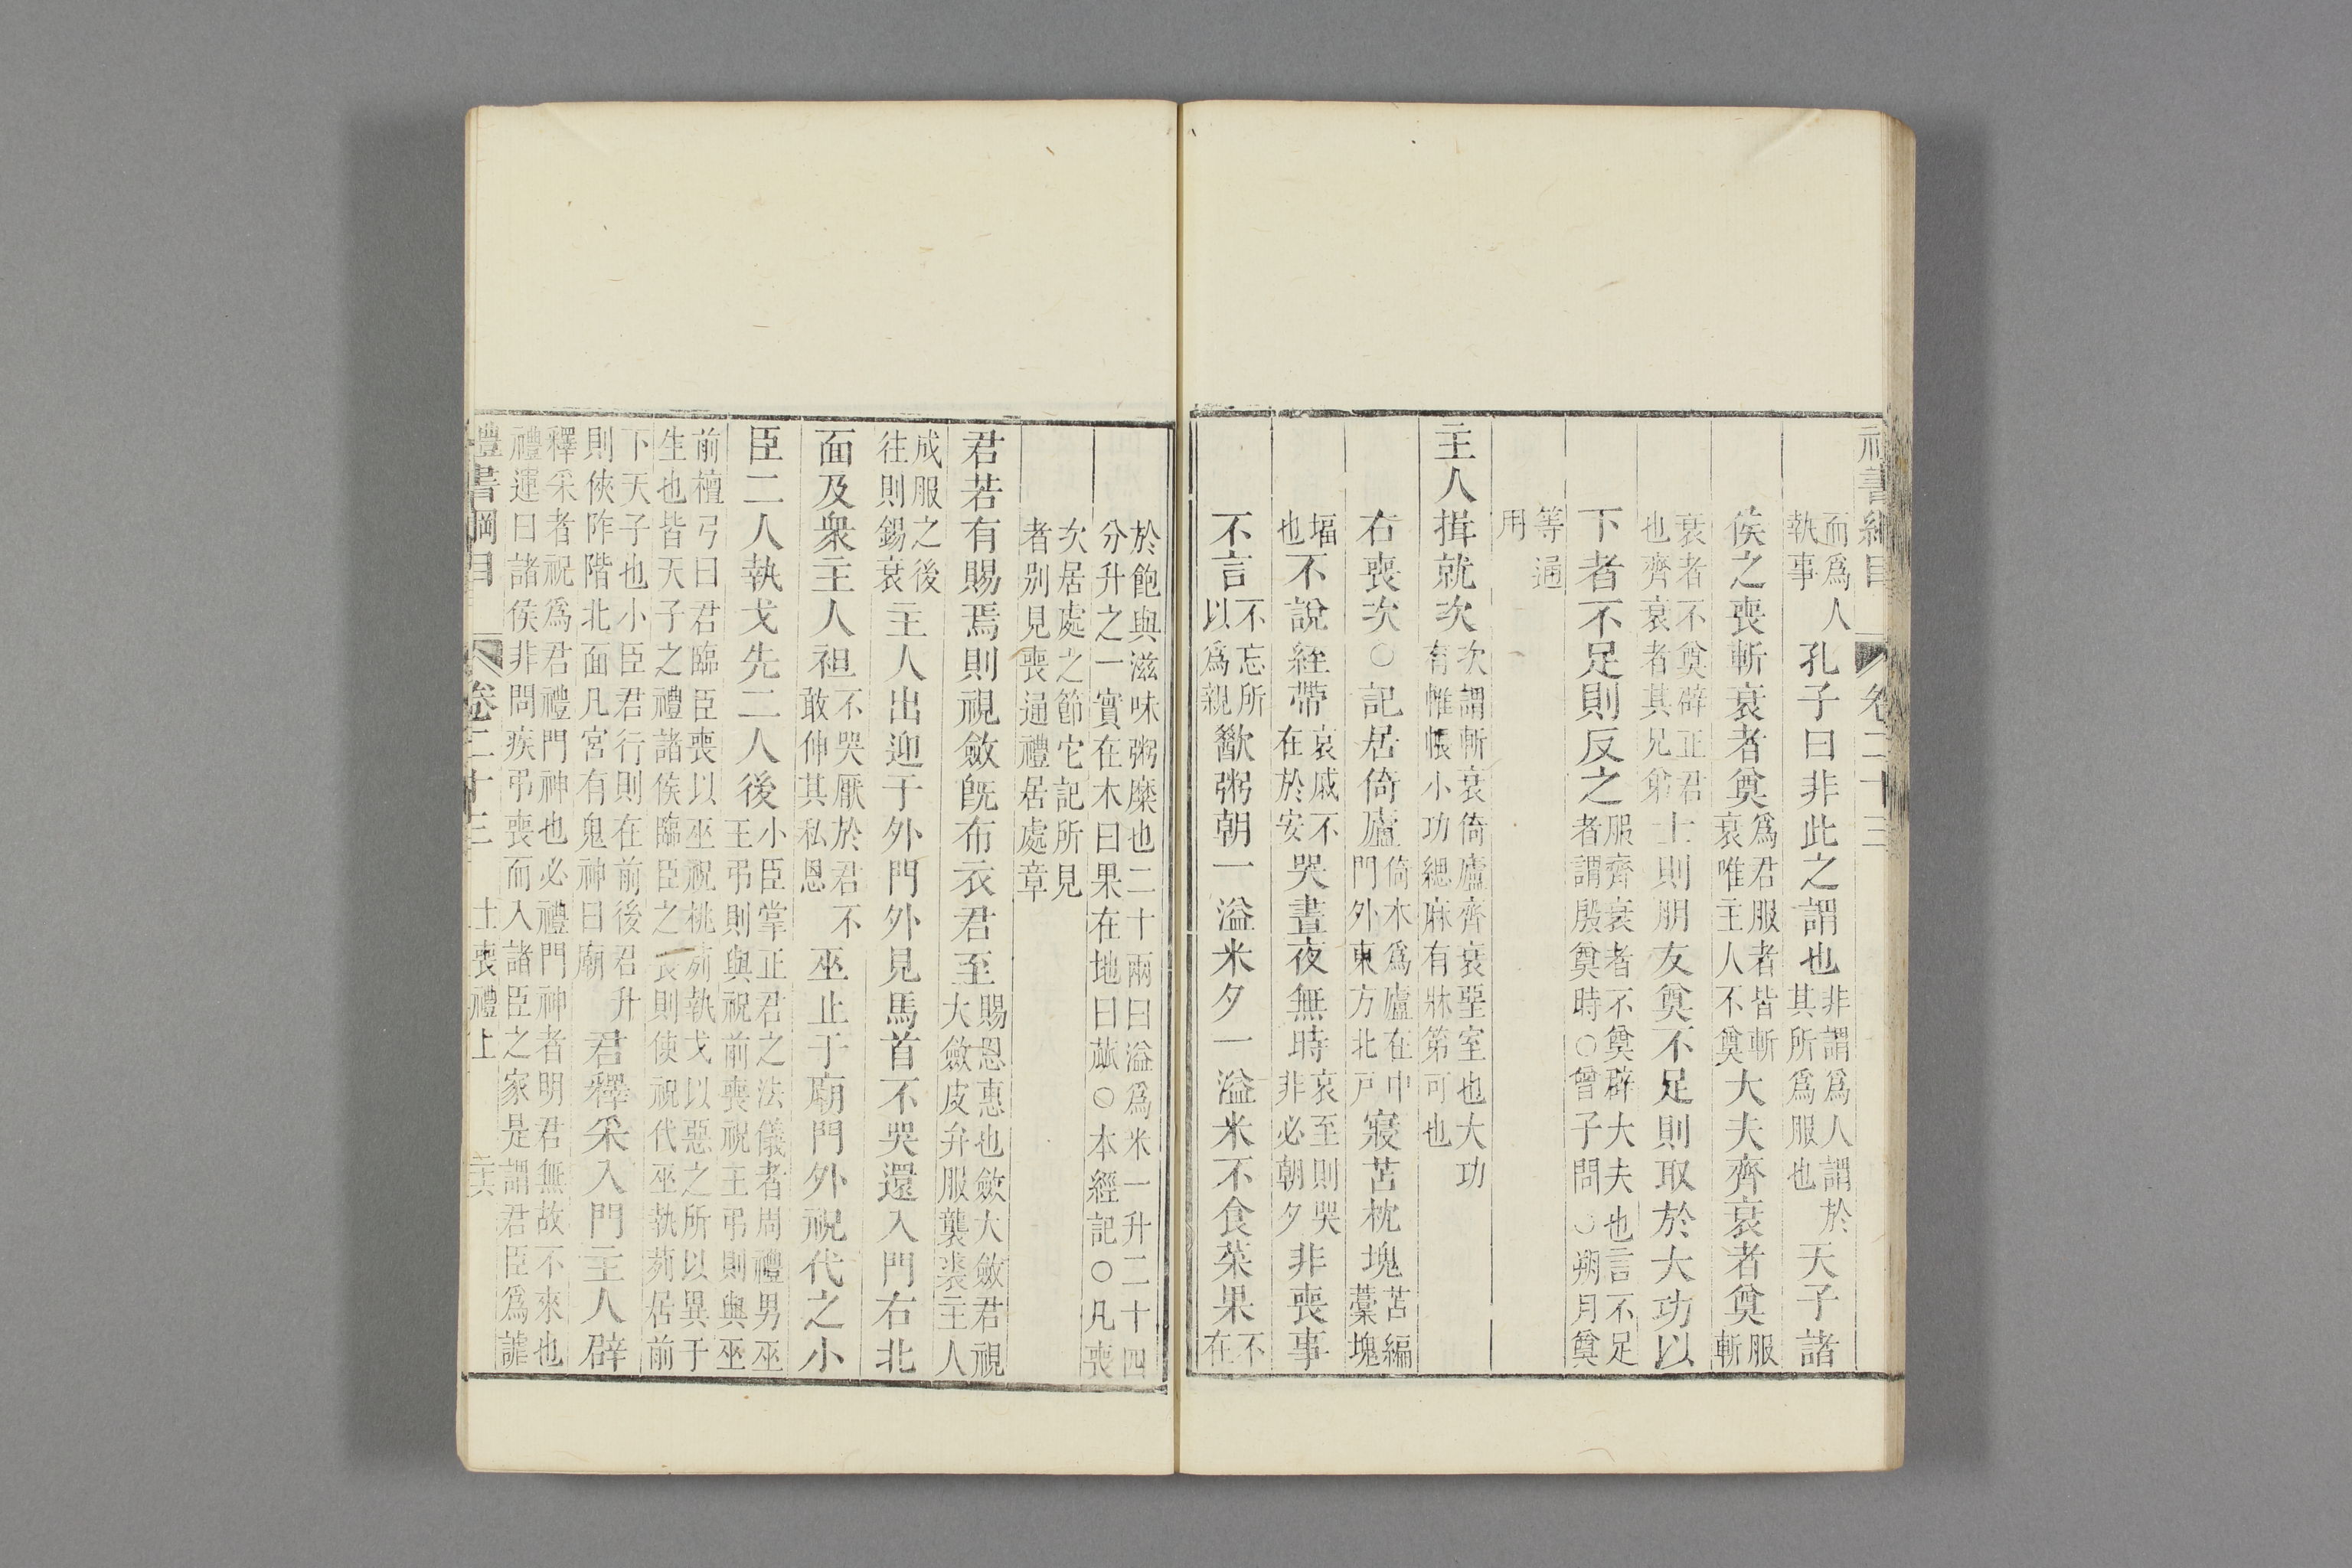 禮書綱目 卷二十三
而爲人執事孔子曰非此之謂也非謂爲人謂於其所爲服也天子諸
侯之喪斬衰者奠爲君服者皆斬衰唯主人不奠大夫齊衰者奠服斬
衰者不奠辟正君也齊衰者其兄弟士則朋友奠不足則取於大功以
下者不足則反之服齊衰者不奠辟大夫也言不足者謂殷奠時○曾子問○朔月奠
等通用
主人揖就次次謂斬衰倚廬齊衰堊室也大功有帷帳小功緦麻有牀笫可也
右喪次○記居倚廬倚木爲廬在中門外東方北戶寢苫枕塊苫編藁塊
堛也不說絰帶哀戚不在於安哭晝夜無時哀至則哭非必朝夕非喪事
不言不忘所以爲親歠粥朝一溢米夕一溢米不食菜果不在
於飽與滋味粥糜也二十兩曰溢爲米一升二十四分升之一實在木曰果在地曰蓏○本經記○凡喪
次居處之節它記所見者別見喪通禮居處章
君若有賜焉則視斂既布衣君至賜恩惠也斂大斂君視大斂皮弁服襲裘主人
成服之後往則錫衰主人出迎于外門外見馬首不哭還入門右北
面及衆主人袒不哭厭於君不敢伸其私恩巫止于廟門外祝代之小
臣二人執戈先二人後小臣掌正君之法儀者周禮男巫王弔則與祝前喪祝王弔則與巫
前檀弓曰君臨臣喪以巫祝桃茢執戈以惡之所以異于生也皆天子之禮諸侯臨臣之喪則使祝代巫執茢居前
下天子也小臣君行則在前後君升則俠阼階北面凡宮有鬼神曰廟君釋采入門主人辟
釋采者祝爲君禮門神也必禮門神者明君無故不來也禮運曰諸侯非問疾弔喪而入諸臣之家是謂君臣爲謔
禮書綱目 卷二十三 士喪禮上